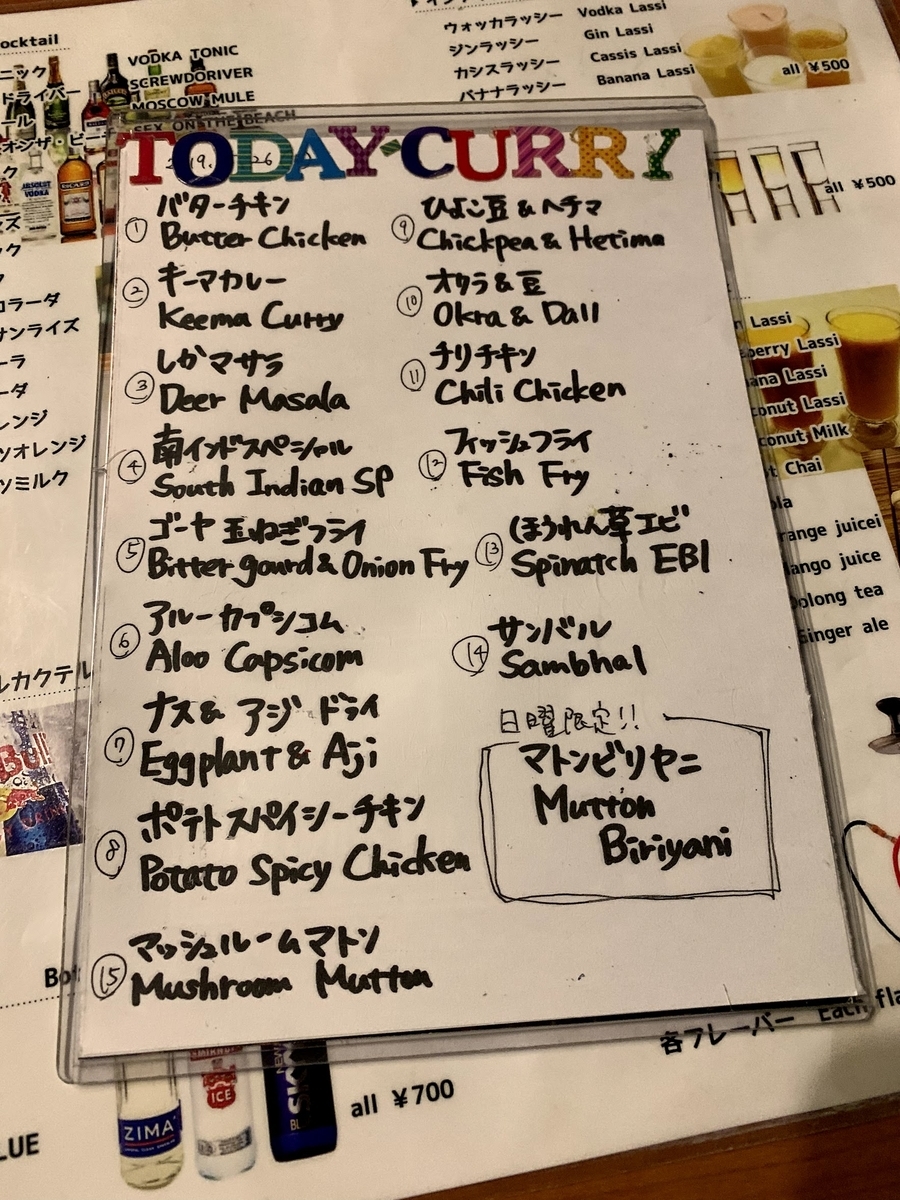 ocktail
VODKA TONIC
SCREWDORIVER
MOSCOW MULE
SEX ON THE BEACH
ニック
ドライバー
ール
オンザ・ビー
コラーダ
サンライズ
ーラ
ーダ
レンジ
ツオレンジ
ツミルク
ルカクテル
ウォッカラッシー Vodka Lassi
ジンラッシー Gin Lassi
カシスラッシー Cassis Lassi
バナナラッシー Banana Lassi
all ¥500
all ¥500
TODAY CURRY
① バターチキン
Butter Chicken
② キーマカレー
Keema Curry
③ しかマサラ
Deer Masala
④ 南インドスペシャル
South Indian SP
⑤ ゴーヤ 玉ねぎフライ
Bitter gourd & Onion Fry
⑥ アルーカプシコム
Aloo Capsicom
⑦ ナス& アジ ドライ
Eggplant & Aji
⑧ ポテトスパイシーチキン
Potato Spicy Chicken
⑮ マッシュルームマトン
Mushroom Mutton
⑨ ひよこ豆&ヘチマ
Chickpea & Hetima
⑩ オクラ&豆
Okra & Dall
⑪ チリチキン
Chili Chicken
⑫ フィッシュフライ
Fish Fry
⑬ ほうれん草エビ
Spinatch EBI
⑭ サンバル
Sambhal
日曜限定!!
マトンビリヤニ
Mutton
Biriyani
n Lassi
perry Lassi
ana Lassi
conut Lassi
conut Milk
t Chai
ola
range juicei
ango juice
olong tea
Ginger ale
各フレーバー Each fla
ABSOLUT
VODKA
Bull
Bo
LUE
ZIMA
ICE
SKY
all ¥700